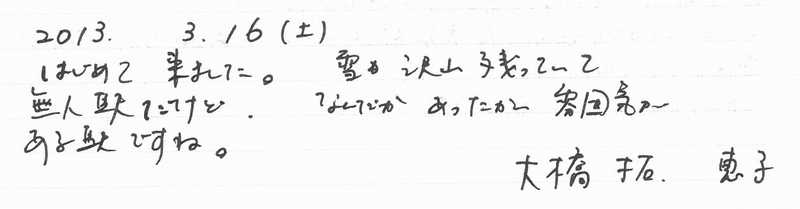 2013. 3.16(土)
はじめて 来ました。 雪も 沢山 残っていて
無人駅だけど. なんだか あったかい 雰囲気が
ある駅ですね。
大橋 拓. 恵子